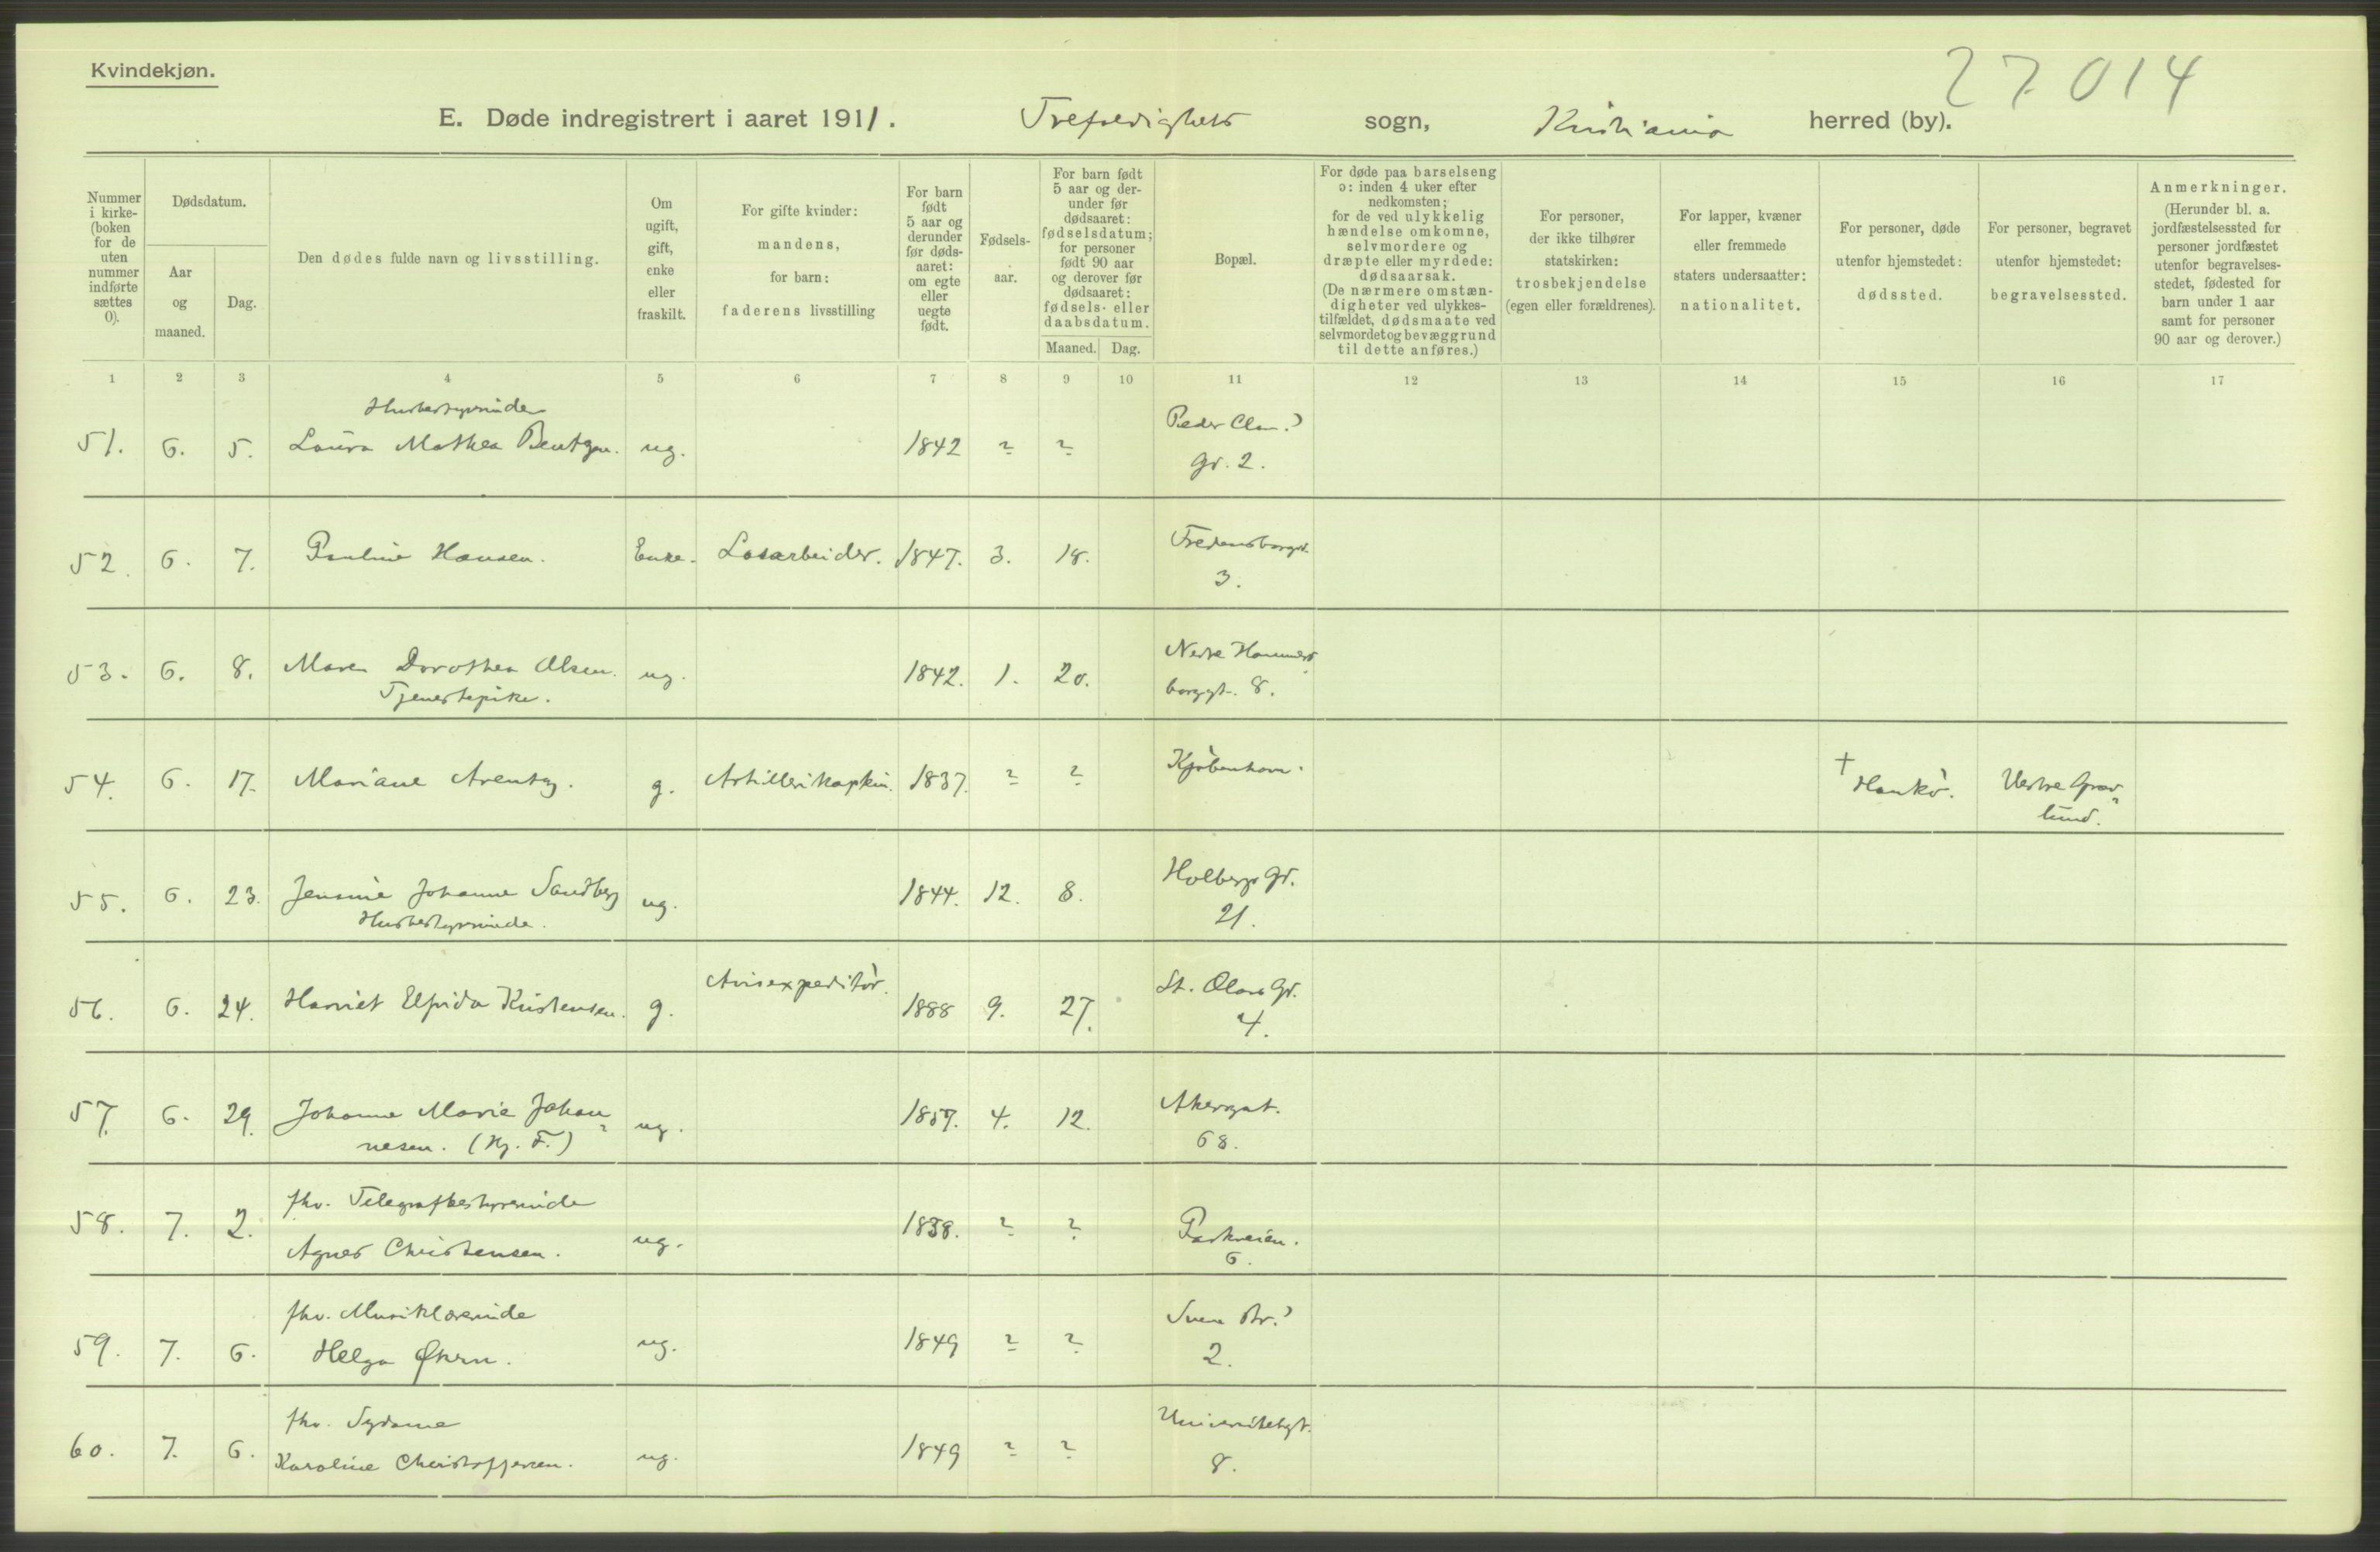 Kvindekjøn.
27014
E. Døde indregistrert i aaret 1911. Trefoldigheds sogn, Kristiania herred (by).
Nummer i kirkeboken for de uten nummer indførte sættes 0).
Dødsdatum.
Aar og maaned.
Dag.
Den dødes fulde navn og livsstilling.
Om ugift, gift, enke eller fraskilt.
For gifte kvinder: mandens, for barn: faderens livsstilling
For barn født 5 aar og derunder før dødsaaret: om egte eller uegte født.
Fødselsaar.
For barn født 5 aar og derunder før dødsaaret: fødselsdatum; for personer født 90 aar og derover før dødsaaret: fødsels- eller daabsdatum.
Maaned. Dag.
Bopæl.
For døde paa barselseng ɔ: inden 4 uker efter nedkomsten; for de ved ulykkelig hændelse omkomne, selvmordere og dræpte eller myrdede: dødsaarsak. (De nærmere omstændigheter ved ulykkestilfældet, dødsmaate ved selvmordet og bevæggrund til dette anføres.)
For personer, der ikke tilhører statskirken: trosbekjendelse (egen eller forældrenes).
For lapper, kvæner eller fremmede staters undersaatter: nationalitet.
For personer, døde utenfor hjemstedet: dødssted.
For personer, begravet utenfor hjemstedet: begravelsessted.
Anmerkninger. (Herunder bl. a. jordfæstelsessted for personer jordfæstet utenfor begravelsesstedet, fødested for barn under 1 aar samt for personer 90 aar og derover.)
1 2 3 4 5 6 7 8 9 10 11 12 13 14 15 16 17
Husbestyrinde
51. 6. 5. Laura Mathea Bentzen. ug. 1842 ? ? Peder Clau.?
gr. 2.
52. 6. 7. Pauline Hansen. Enke. Løsarbeider. 1847. 3. 18. Fredensborgv.
3.
53. 6. 8. Maren Dorothea Olsen. ug. 1842. 1. 20. Nedre Hammers
Tjenestepike. borggt. 8.
54. 6. 17. Mariane Arentz. g. Artillerikaptein. 1837. ? ? Kjøbenhavn. † Hankø. Vestre Grav
lund.
55. 6. 23. Jensine Johanne Sandberg ug. 1844. 12. 8. Holbergs Gd.
Husbestyrinde. 21.
56. 6. 24. Harriet Elfrida Kristensen. g. Avisexpeditør. 1888 9. 27. St. Olavs Gd.
4.
57. 6. 29. Johanne Marie Johan ug. 1857. 4. 12. Akersgat.
nesen. (Hj. F.) 68.
fhv. Telegrafbestyrerinde
58. 7. 2. Agnes Christensen. ug. 1838. ? ? Parkveien.
6.
fhv. Musiklærerinde
59. 7. 6. Helga Økern. ug. 1849 ? ? Svens Br.?
2.
fhv. Sydame
60. 7. 6. Karoline Christoffersen. ug. 1849 ? ? Universitetsgt.
8.